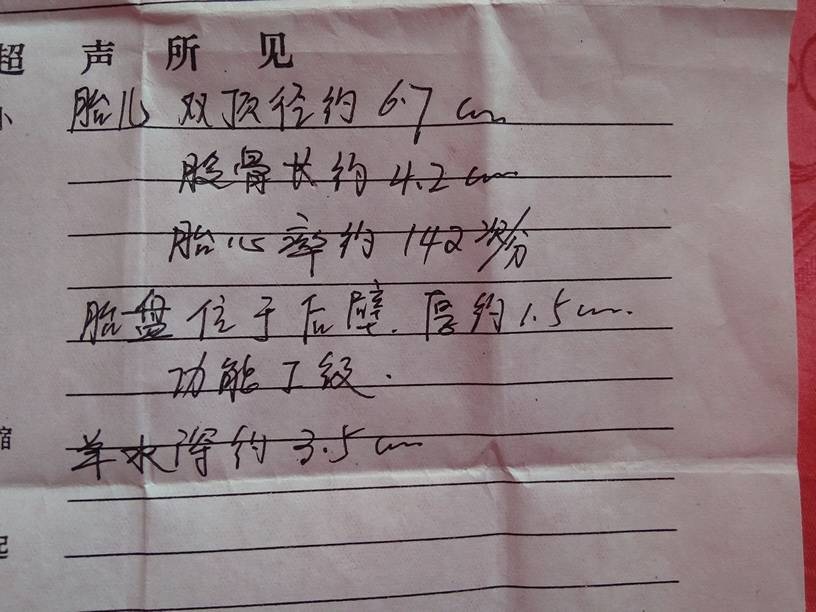 超声所见
小
胎儿 双顶径约 6.7 cm
股骨长约 4.2 cm
胎心率约 142 次/分
胎盘位于后壁. 厚约 1.5 cm.
功能 I 级.
羊水深约 3.5 cm
缩
起